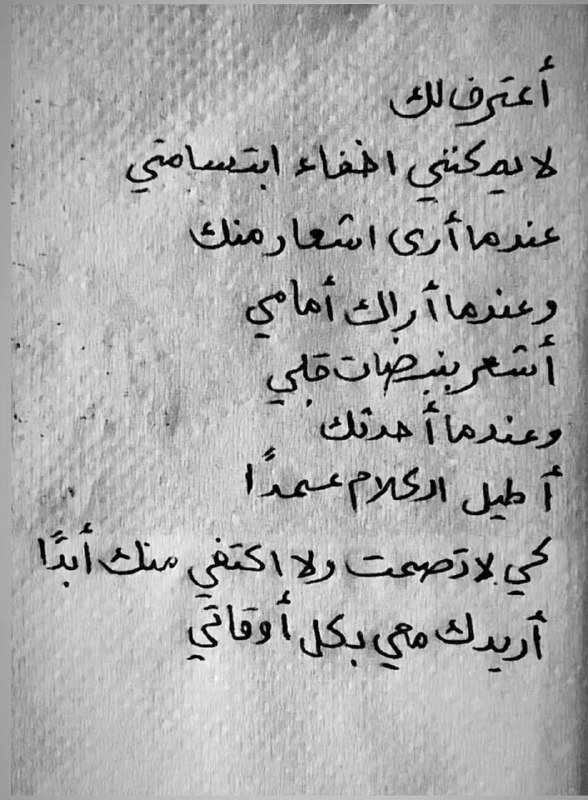 أعترف لك
لا يمكنني اخفاء ابتسامتي
عندما أرى اشعار منك
وعندما أراك أمامي
أشعر بنبضات قلبي
وعندما أحدثك
أطيل الكلام عمدًا
كي لا تصمت ولا اكتفي منك أبدًا
أريدك معي بكل أوقاتي